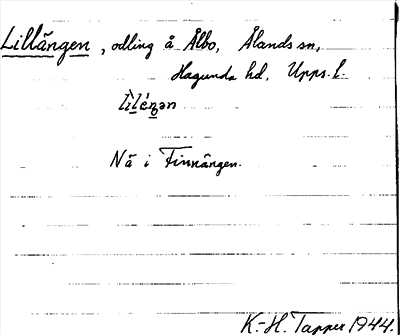 Lillängen, odling å Ålbo, Ålands sn,
Hagunda hd, Upps. l.
Nä i Finnängen.
K.-H. Tapper 1944.